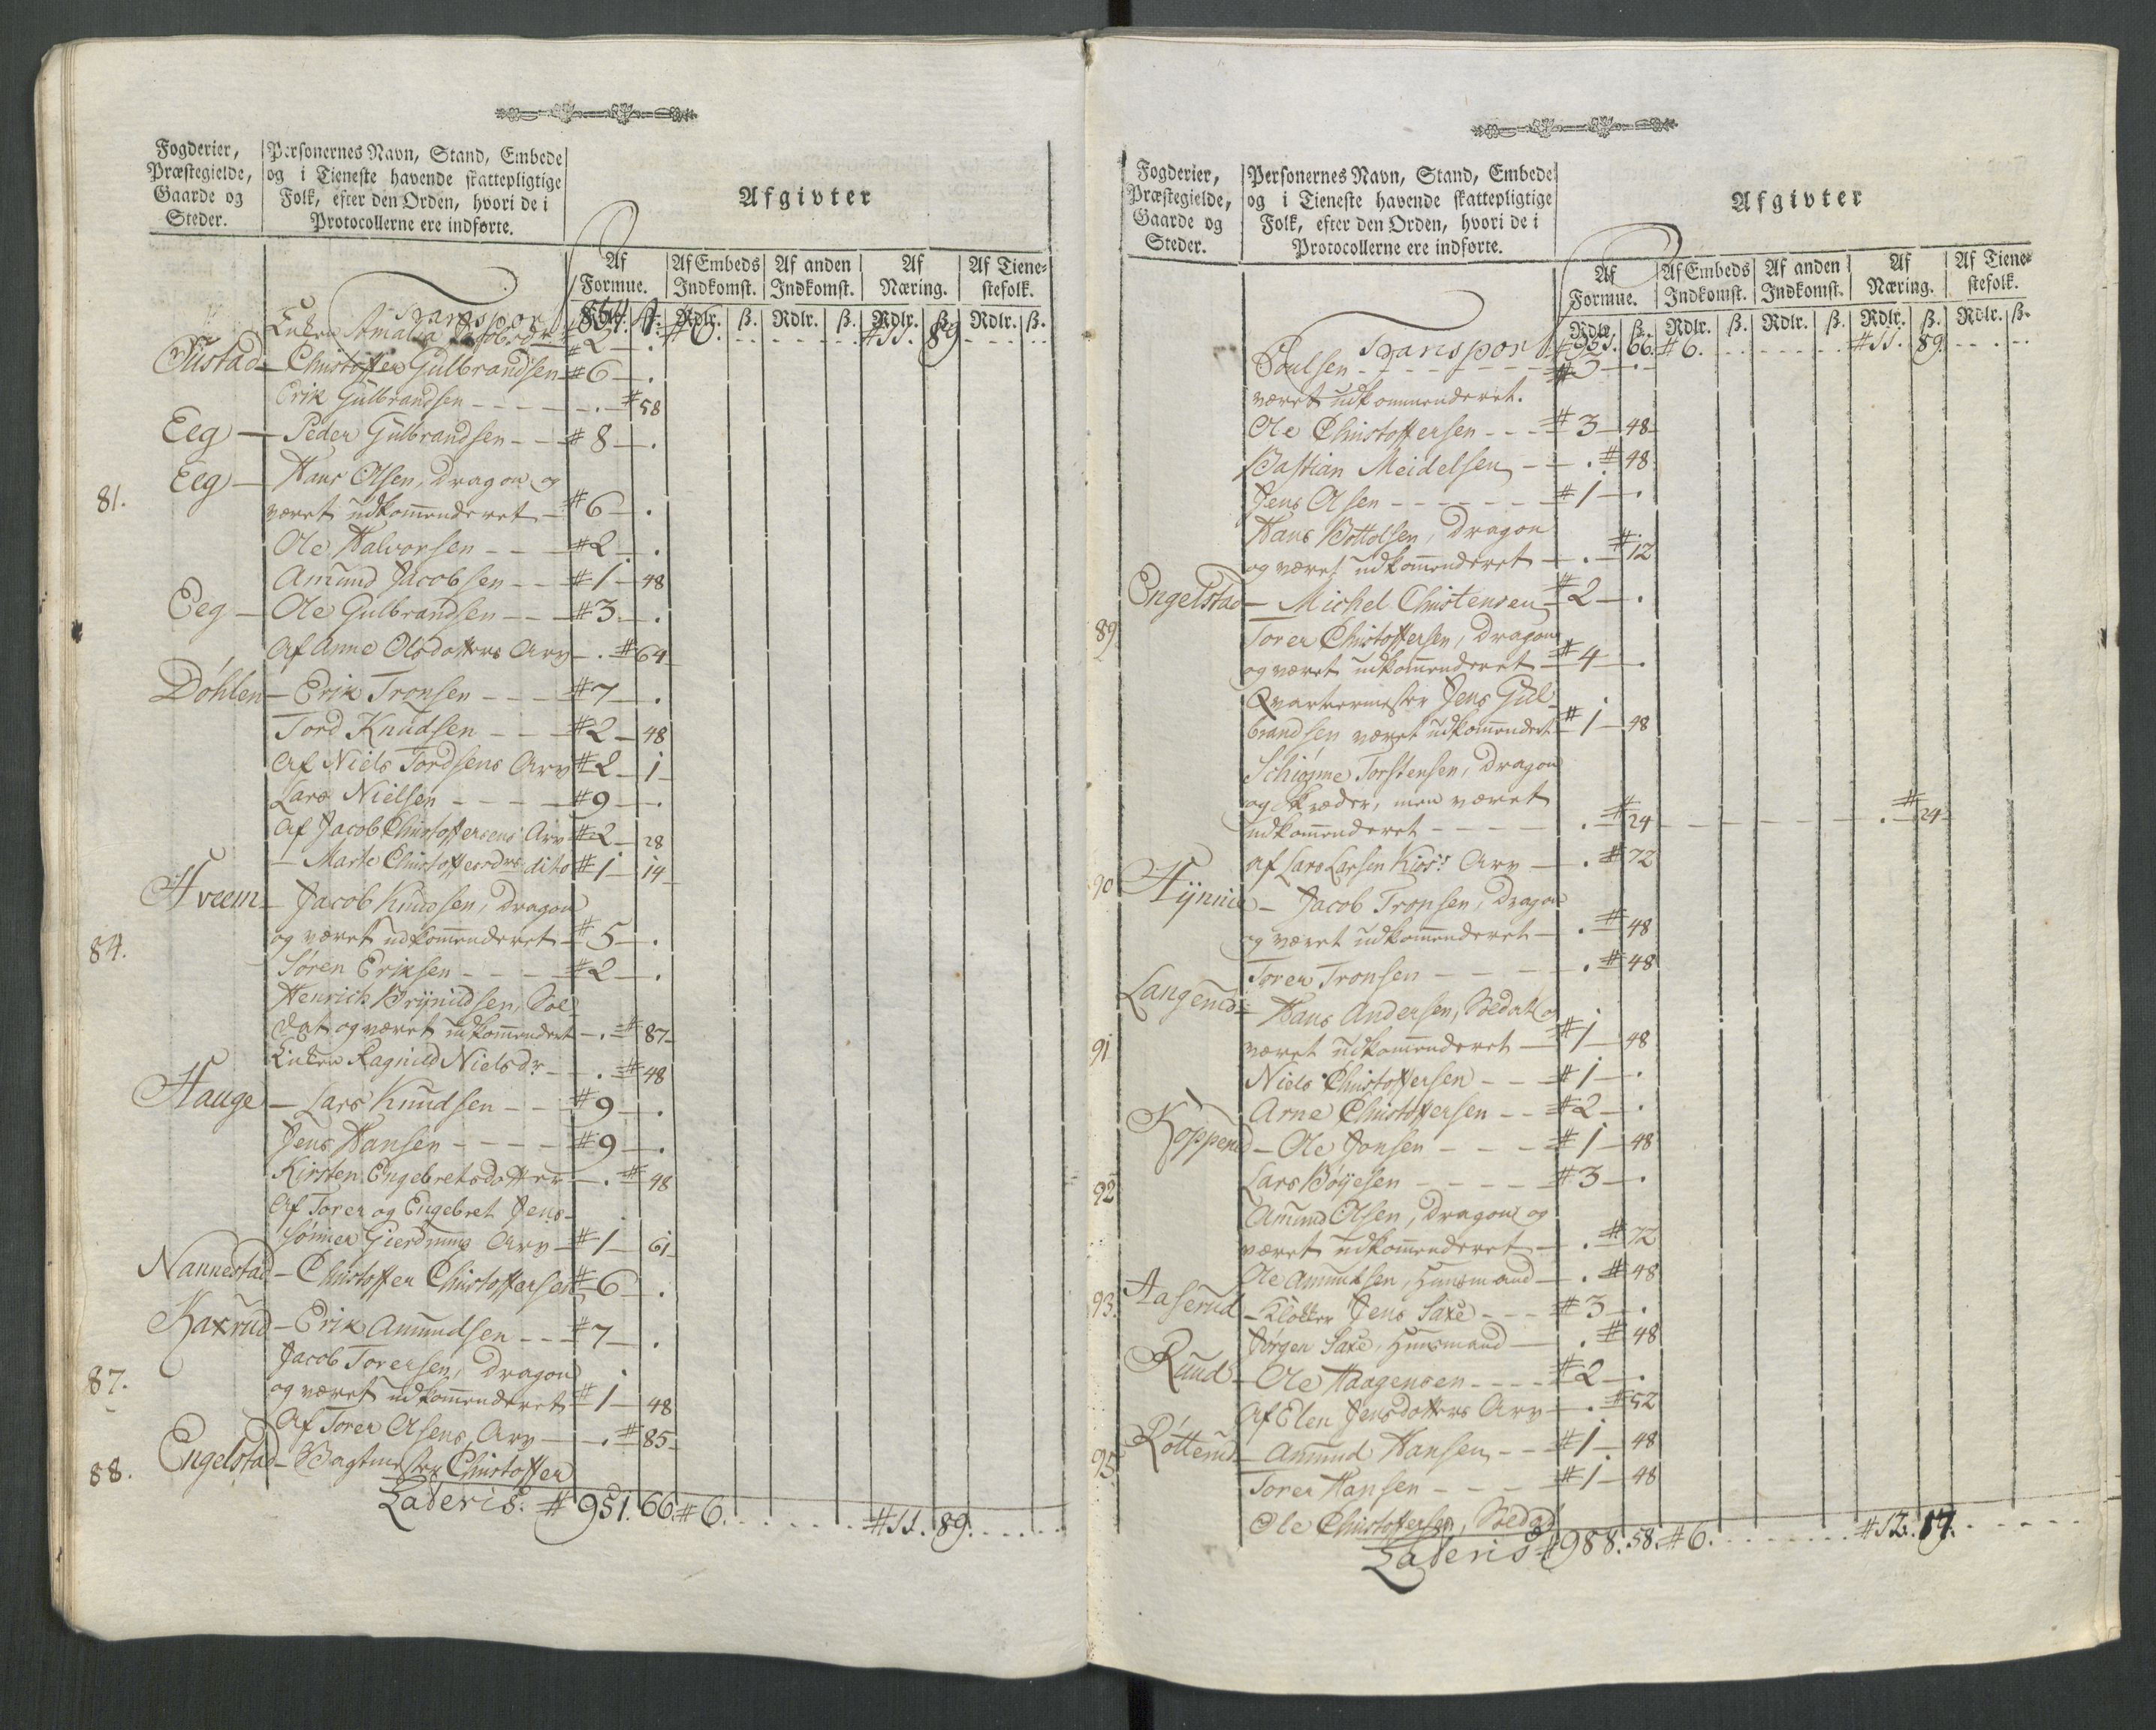 Fogderier,
Præstegielde,
Gaarde og
Steder.
Personernes Navn, Stand, Embede
og i Tieneste havende skattepligtige
Folk, efter den Orden, hvori de i
Protocollerne ere indførte.
Afgivter
Af Formue. Af Embeds Indkomst. Af anden Indkomst. Af Næring. Af Tienestefolk.
Rdlr. ß. Rdlr. ß. Rdlr. ß. Rdlr. ß.
Transport #6. #11. 89
Enken Amalia Jacobsdr #2 - .
Tustad - Christoffer Gulbrandsen #6 - .
Erik Gulbrandsen - . #58
Eeg - Peder Gulbrandsen - #8 - .
Eeg - Hans Olsen, Dragon og
81. været udkom̄enderet - #6 - .
Ole Halvorsen - #2 - .
Amund Jacobsen - #1 - 48
Eeg - Ole Gulbrandsen - #3 - .
Af Anne Olsdotters Arv - . #64
Döhlen - Erik Tronsen - #7 - .
Tord Knudsen - #2 - 48
Af Niels Tordsens Arv #2 - 1
Lars Nielsen - #9 - .
Af Jacob Christoffersens Arv #2 - 28
- Marte Christoffersdrs dito #1 - 14
Hveem - Jacob Knudsen, Dragon
84. og været udkom̄enderet - #5 - .
Søren Eriksen - #2 - .
Henrich Brynildsen, Sol-
dat og været udkom̄enderet - . #87
Enken Ragnild Nielsdr - . #48
Hauge - Lars Knudsen - #9 - .
Jens Hansen - #9 - .
Kirsten Engebretsdotter - . #48
Af Torer og Engebret Jens-
Sønner Gierdrums Arv - #1 - 61
Nannestad - Christoffer Christoffersen #6 - .
Kaxrud - Erik Amundsen - #7 - .
Jacob Torersen, Dragon
87. og været udkom̄enderet #1 - 48
Af Torer Olsens Arv - . #85
88. Engelstad - Vagtmester Christoffer
Lateris. #951. 66. #6. #11. 89.
Fogderier,
Præstegielde,
Gaarde og
Steder.
Personernes Navn, Stand, Embede
og i Tieneste havende skattepligtige
Folk, efter den Orden, hvori de i
Protocollerne ere indførte.
Afgivter
Af Formue. Af Embeds Indkomst. Af anden Indkomst. Af Næring. Af Tienestefolk.
Rdlr. ß. Rdlr. ß. Rdlr. ß. Rdlr. ß. Rdlr. ß.
Transport #951. 66. #6. #11. 89.
Poulsen - #3 - .
været udkommenderet.
Ole Christoffersen - #3 - 48
Bastian Meidelsen - . #48
Jens Olsen - #1 - .
Hans Bottolsen, Dragon
og været udkom̄enderet - . #12
Engelstad - Michel Christensen #2 - .
89 Torer Christoffersen, Dragon
og været udkom̄enderet #4 - .
Qvartermester Jens Gul-
brandsen været udkom̄endert #1 - 48
Torstensen, Dragon
og Skræder, men været
udkom̄enderet - . #24 - . #24
af Lars Larsen Arv - . #72
90 Jacob Tronsen, Dragon
og været udkom̄enderet - . #48
Torer Tronsen - . #48
Langerud - Hans Andersen, Soldat og
91 været udkom̄enderet - #1 - 48
Niels Christoffersen - #1 - .
Arne Christoffersen - #2 - .
Kopperud - Ole Jonsen - #1 - 48
92 Lars Böyesen - #3 - .
Amund Olsen, Dragon og
været udkom̄enderet - . #72
Ole Amundsen, Huusmand - . #48
93. Aaserud - Klokker Jens Saxe - #3 - .
Jørgen Saxe, Huusmand - . #48
Ruud - Ole Haagensen - #2 - .
Af Elen Jensdotters Arv - . #52
95 Rötterud - Amund Hansen - #1 - 48
Torer Hansen - #1 - 48
Ole Christoffersen, Soldat
Lateris #988. 58. #6. #12. 17.